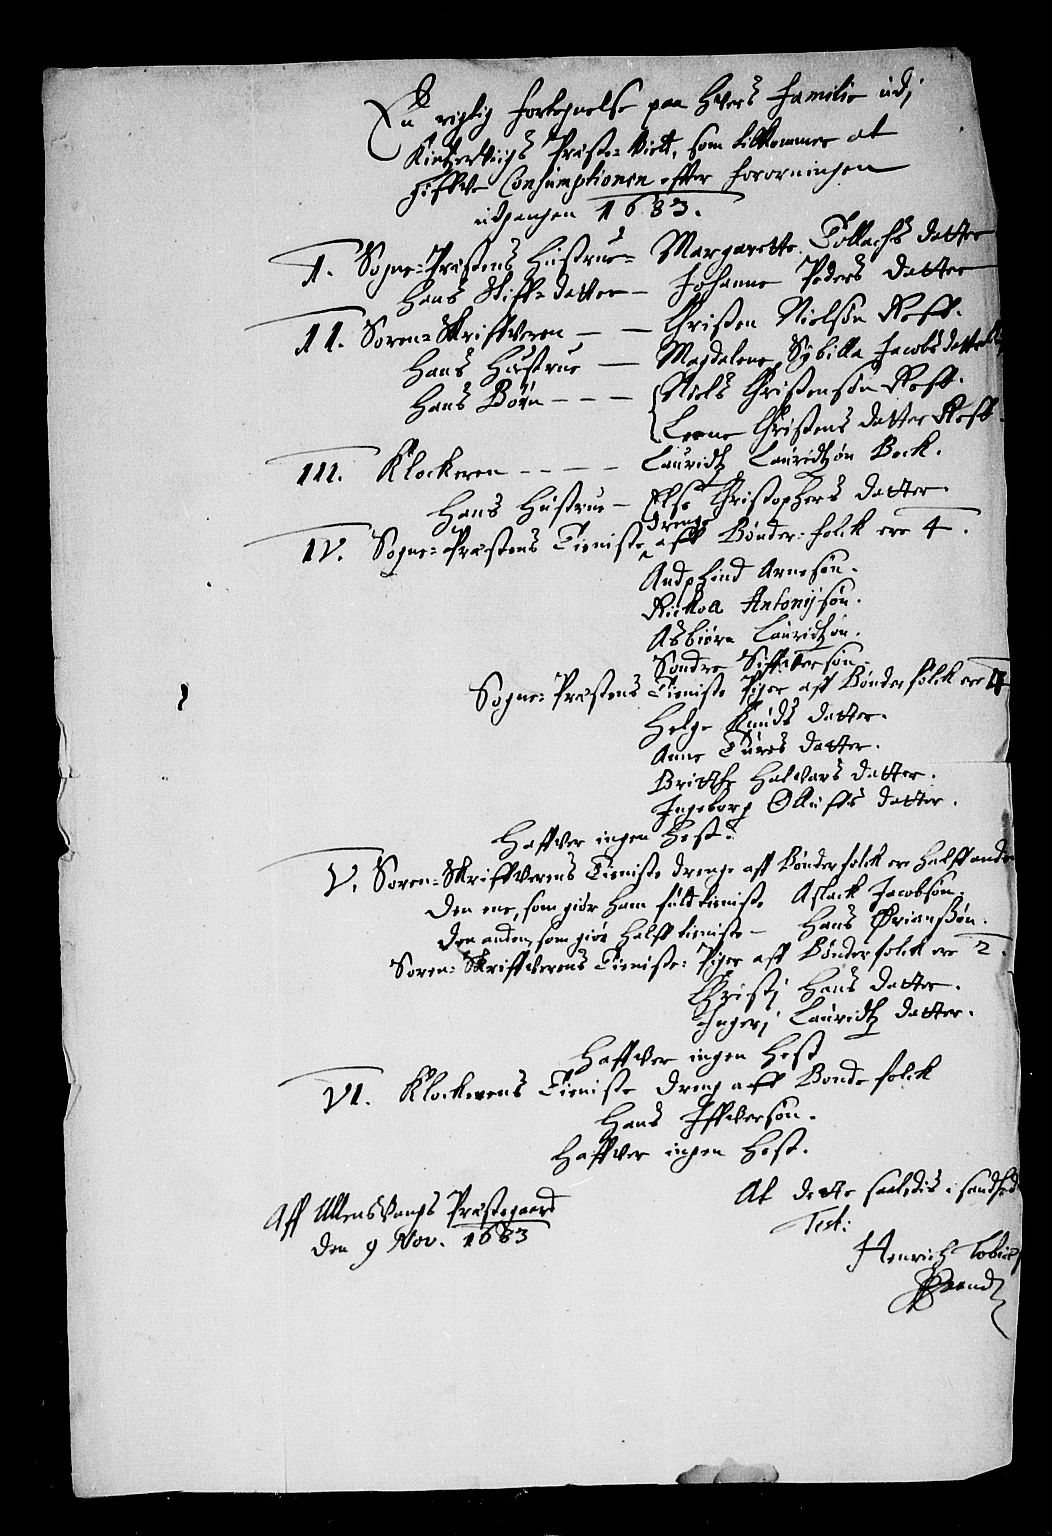 En rigtig fortegnelse paa hvers Familie udj
Kintzervigs Præste-Vield, som tilkommer at
giffve Consumptionen effter forordningen
udgangen 1683.
I. Sogne-Præstens Hustrue = Margarette Tollachs datter
Hans Stiff-datter — Johanne Peders datter
II. Soren-Skriffveren — — Christen Nielsøn Reff.
Hans Hustrue — Magdalene Sybilla Jacobsdatter
Hans Børn — — — Niels Christensøn Reff.
Leene Christens datter Reff.
III. Klockeren — — — — Lauridtz Lauridtzøn Beck.
Hans Hustrue — Else Christophers datter.
drenge
IV. Sogne-Præstens Tieniste aff Bønder-folck ere 4.
Andphind Arnesøn.
Rickol Antonijsøn.
Asbiørn Lauridtzøn.
Sondre Siffversøn.
Sogne-Præstens Tieniste Piger aff Bønderfolck ere 4
Helge Knuds datter.
Anne Tures datter.
Britthe Halvars datter.
Ingeborg Olluffs datter.
Haffver ingen Hest.
V. Soren-Skriffverens Tieniste drenge aff Bønderfolck ere halff anden
Den ene, som giør ham fuld tieniste Aslack Jacobsøn.
Den anden, som giør halff tieniste — Hans Ørianssøn.
Soren-Skriffverens Tieniste-Piger aff Bønderfolck ere 2.
Christj Hans datter.
Ingerj Lauridtz datter.
Haffver ingen Hest
VI. Klockerens Tieniste dreng aff Bonde folck
Hans Iffversøn.
Haffver ingen Hest.
At dette saaledis i sandhed
Aff Ullensvangs Præstegaard
Test:
den 9 Nov. 1683
Henrich Tobies
Brandt